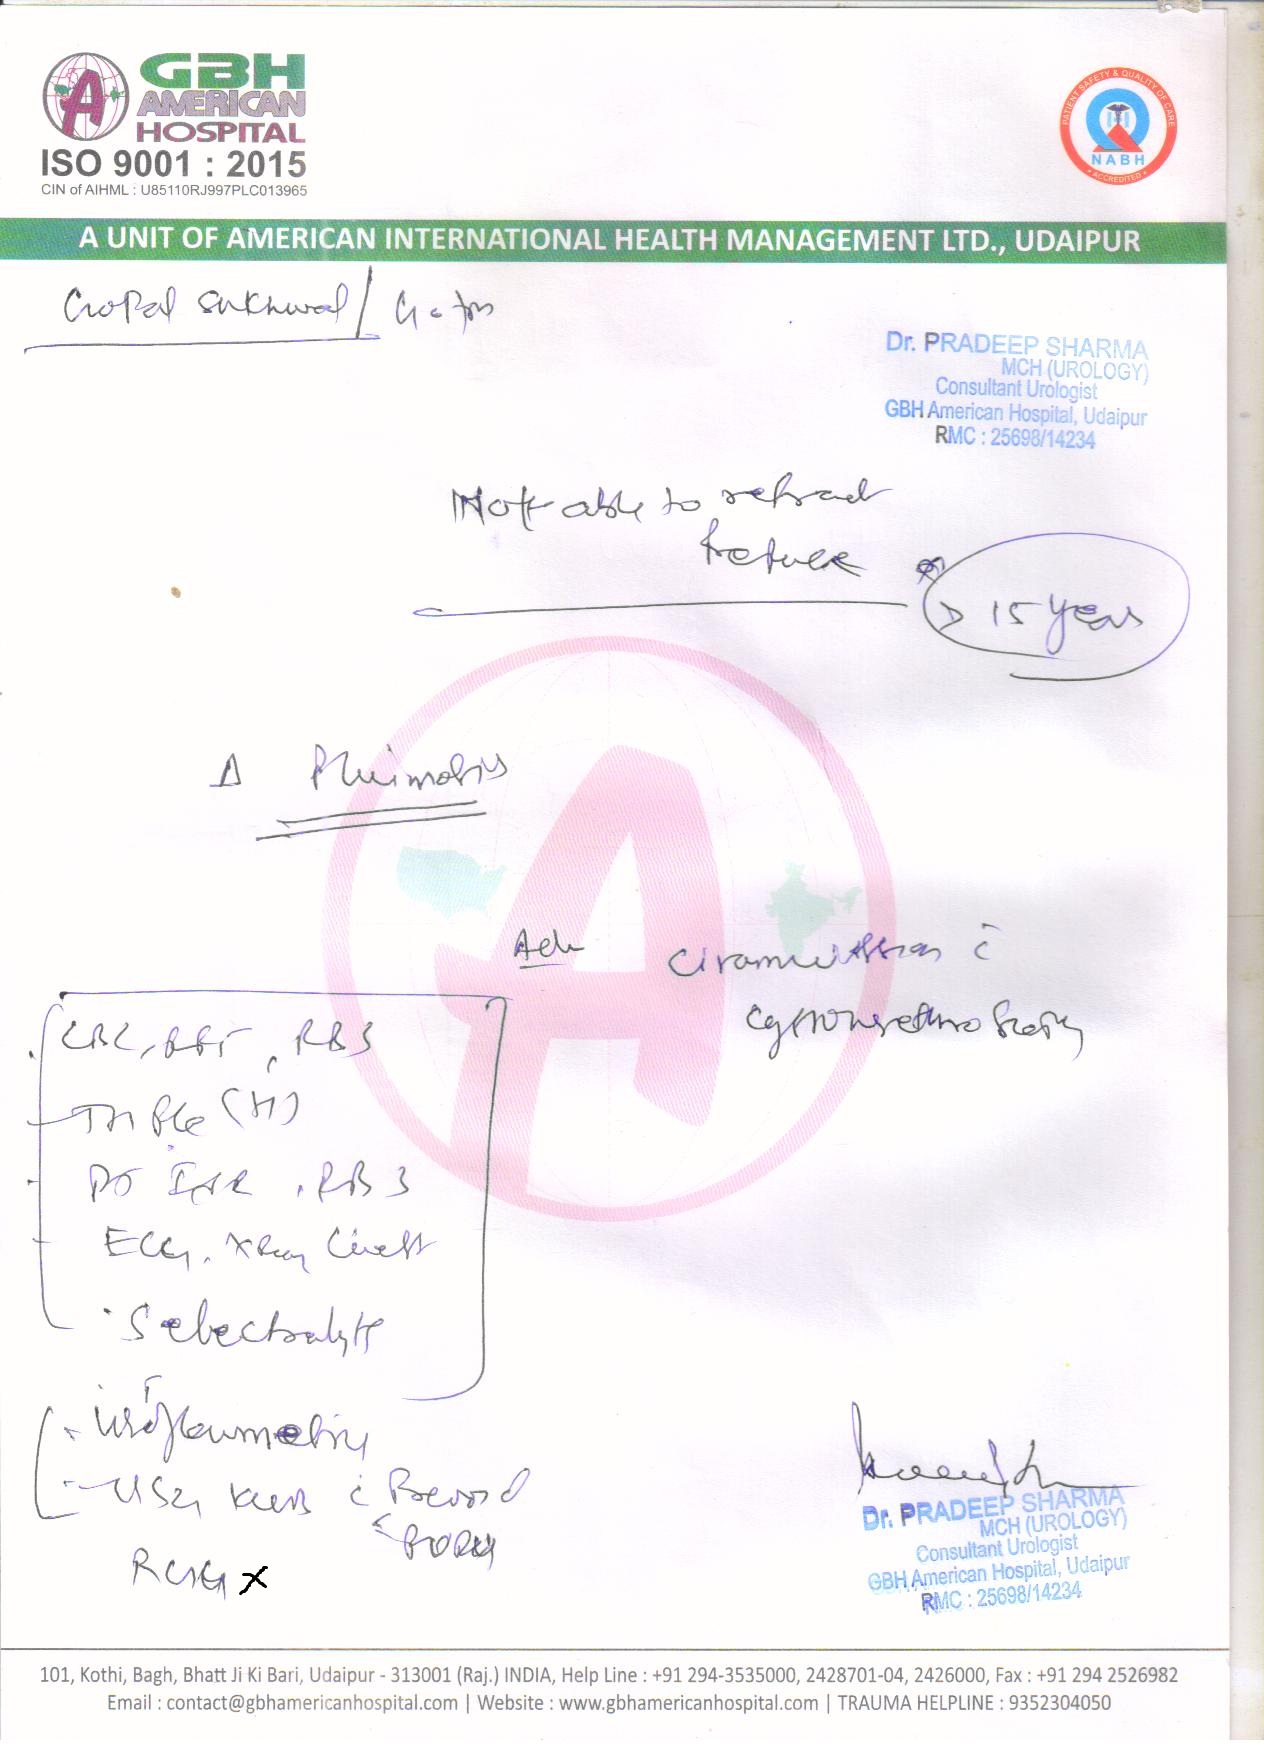 GBH
AMERICAN
HOSPITAL
ISO 9001 : 2015
CIN of AIHML : U85110RJ997PLC013965
PATIENT SAFETY & QUALITY OF CARE
NABH
ACCREDITED
A UNIT OF AMERICAN INTERNATIONAL HEALTH MANAGEMENT LTD., UDAIPUR
Gopal Sukhwal /
Dr. PRADEEP SHARMA
MCH (UROLOGY)
Consultant Urologist
GBH American Hospital, Udaipur
RMC : 25698/14234
Not able to retract
> 15 year
Δ Phimosis
Adv Circumcission c̄
cystourethroscopy
CBC, RFT, RBS
Triple (H)
PT INR, RBS
ECG, Xray Chest
S electrolyte
Uroflowmetry
USG KUB c̄ Prevoid
RGU x
Dr. PRADEEP SHARMA
MCH (UROLOGY)
Consultant Urologist
GBH American Hospital, Udaipur
RMC : 25698/14234
101, Kothi, Bagh, Bhatt Ji Ki Bari, Udaipur - 313001 (Raj.) INDIA, Help Line : +91 294-3535000, 2428701-04, 2426000, Fax : +91 294 2526982
Email : contact@gbhamericanhospital.com | Website : www.gbhamericanhospital.com | TRAUMA HELPLINE : 9352304050